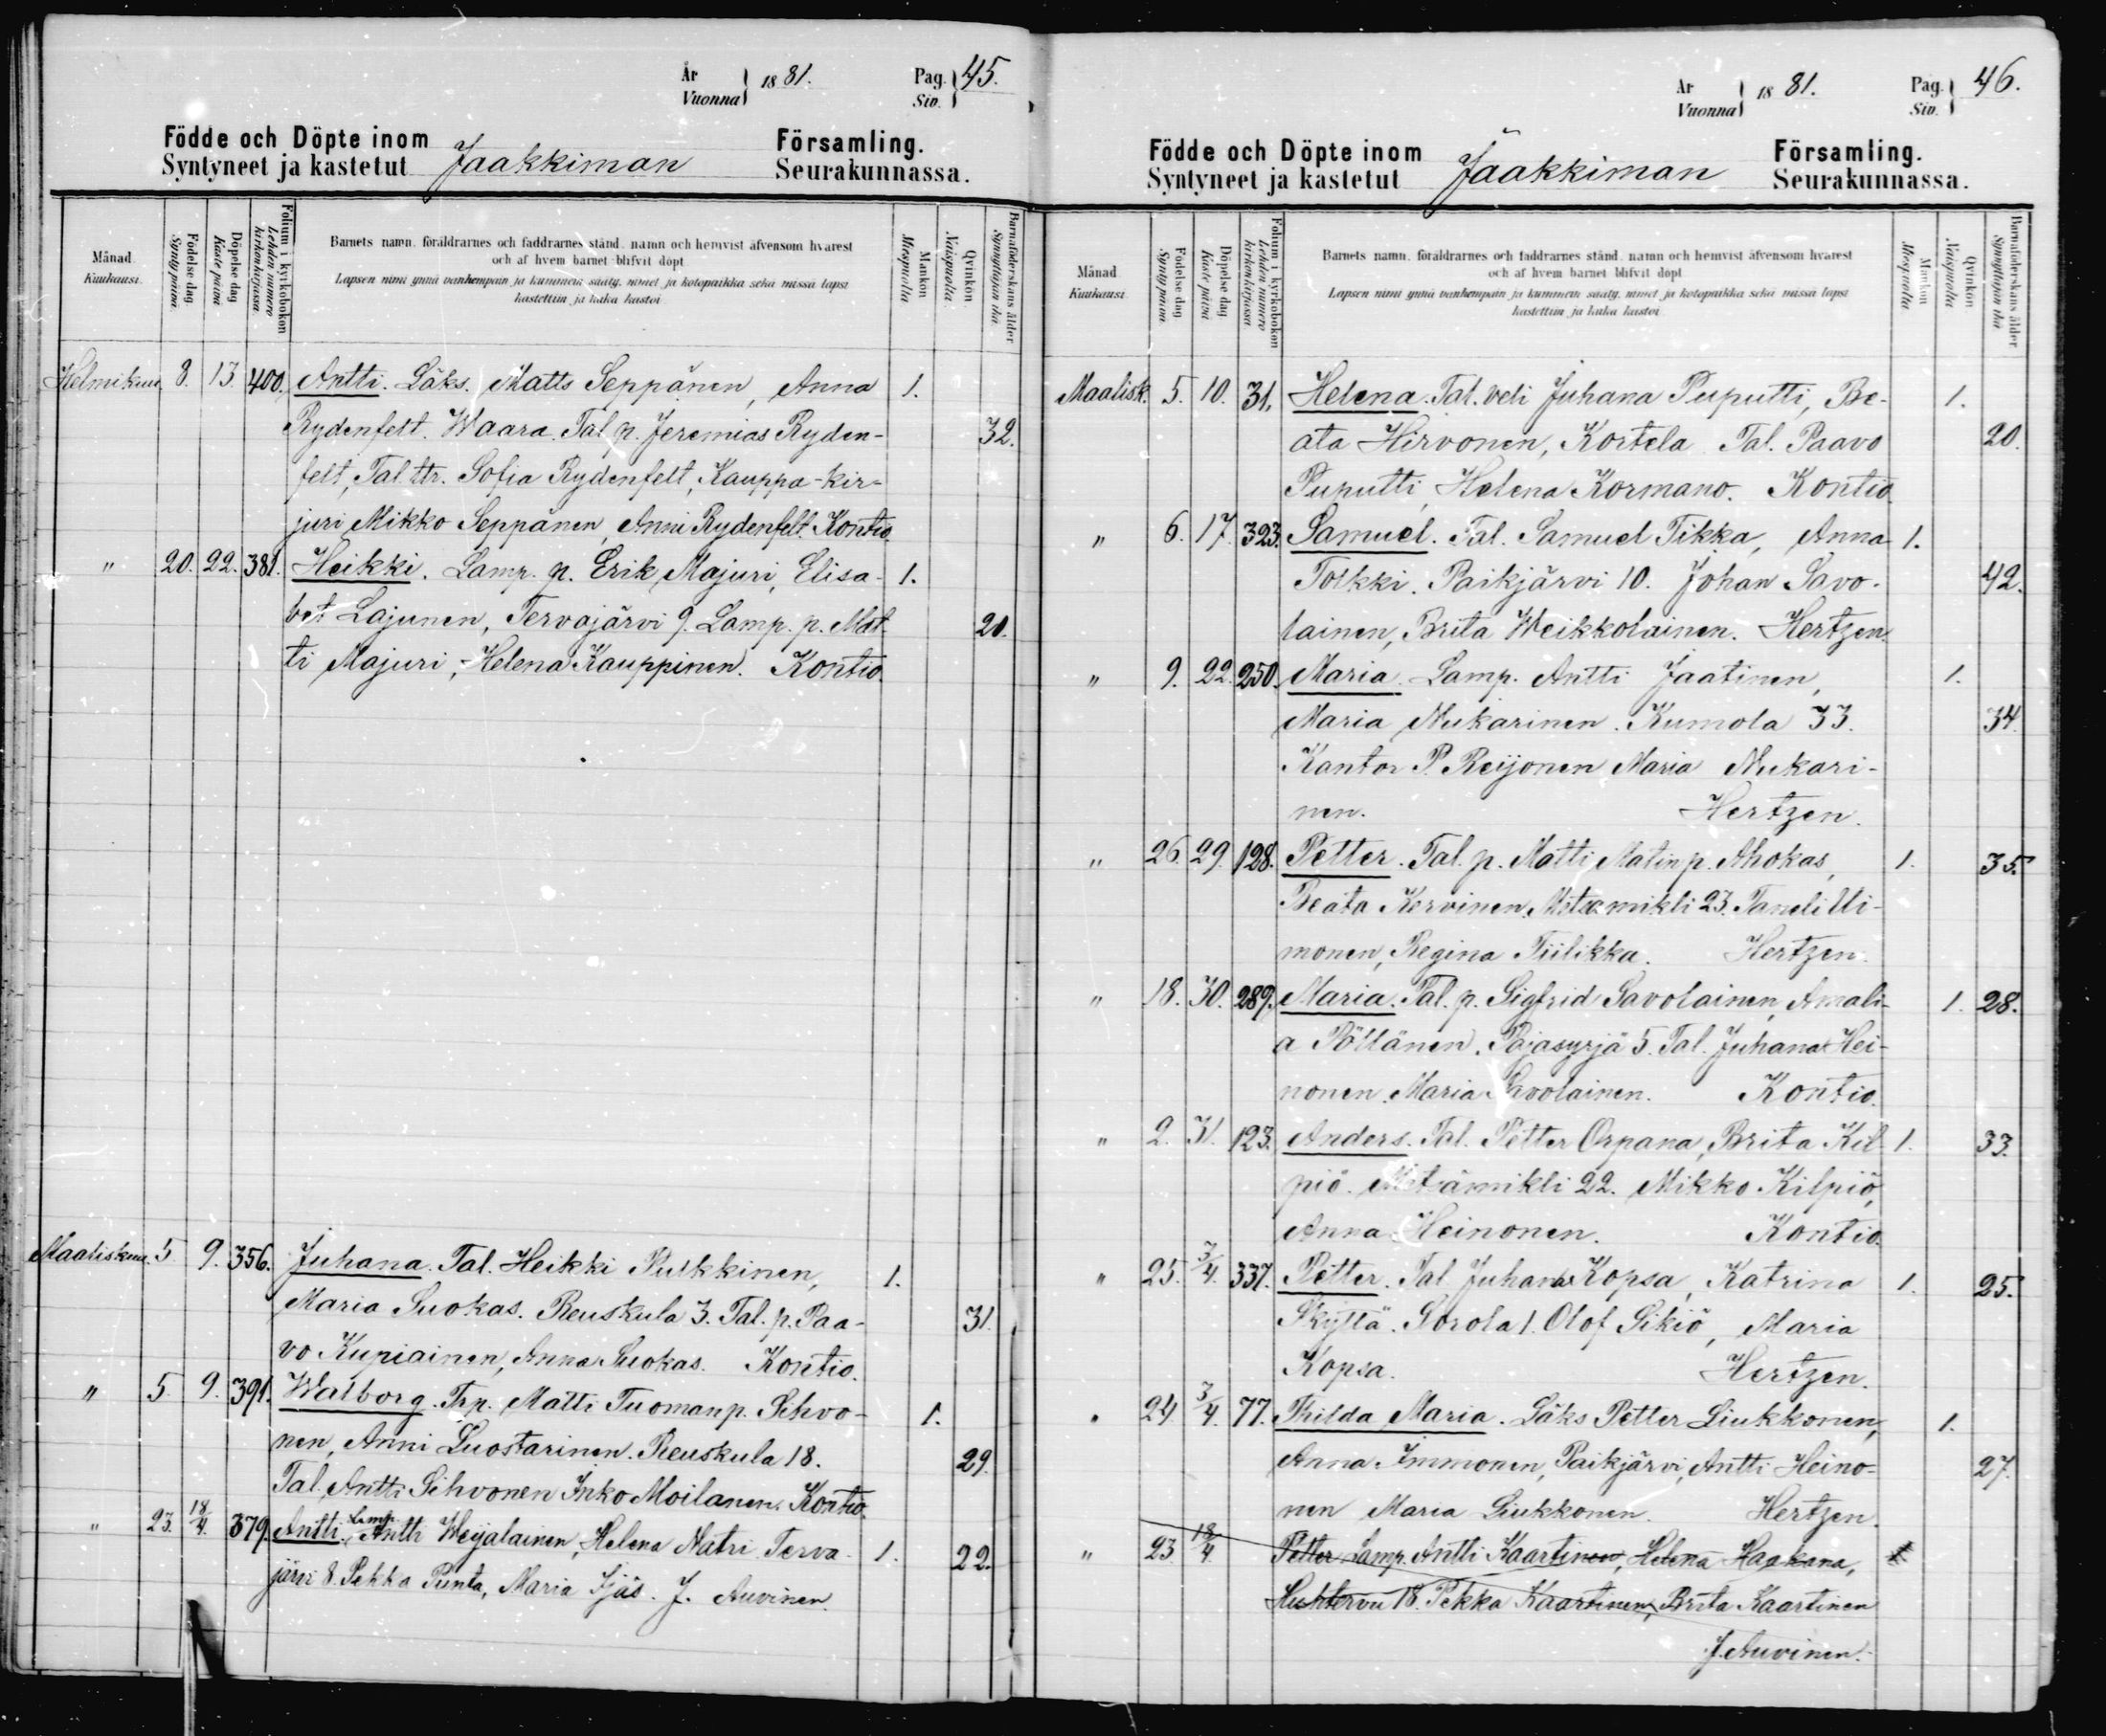 År
Vuonna 1881.
Pag.
Siv. 45.
Födde och Döpte inom
Syntyneet ja kastetut Jaakkiman Församling.
Seurakunnassa.
Månad
Kuukausi.
Födelse dag
Synty päivä
Döpelse dag
Kaste päivä
Folium i kyrkobokon
Lehden numero
kirkonkirjassa
Barnets namn, föräldrarnes och faddrarnes stånd, namn och hemvist äfvensom hvarest
och af hvem barnet blifvit döpt
Lapsen nimi ynnä vanhempain ja kummein sääty, nimet ja kotopaikka sekä missä lapsi
kastettiin ja kuka kastoi
Mankön
Miespuolta
Qvinkön
Naispuolta
Barnaföderskans ålder
Synnyttäjän ikä
Helmikuu 8. 13. 400. Antti. Läks. Matts Seppänen, Anna 1.
Rydenfelt. Waara. Tal. p. Jeremias Ryden- 32.
felt, Tal. ttr. Sofia Rydenfelt, Kauppa-kir-
juri Mikko Seppänen, Anni Rydenfelt. Kontio.
" 20. 22. 381. Heikki. Lamp. p. Erik Majuri, Elisa- 1.
bet Lajunen, Tervajärvi 9. Lamp. p. Mat- 20.
ti Majuri, Helena Kauppinen. Kontio.
Maaliskuu. 5 9. 356. Juhana. Tal. Heikki Pulkkinen, 1.
Maria Suokas. Reuskula 3. Tal. p. Paa- 31.
vo Kupiainen, Anna Suokas. Kontio.
" 5. 9. 391. Walborg. Trp. Matti Tuomanp. Sihvo- 1.
nen, Anni Luostarinen. Reuskula 18. 29.
Tal. Antti Sihvonen Inko Moilanen. Kontio.
" 23. 18/4. 379. Antti. Lamp. Antti Weijalainen, Helena Natri. Terva- 1. 22.
järvi 8. Pekka Punta, Maria Ijäs. J. Auvinen.
År
Vuonna 1881.
Pag.
Siv. 46.
Födde och Döpte inom
Syntyneet ja kastetut Jaakkiman Församling.
Seurakunnassa.
Månad
Kuukausi
Födelse dag
Synty päivä
Döpelse dag
Kaste päivä
Folium i kyrkobokon
Lehden numero
kirkonkirjassa
Barnets namn, föräldrarnes och faddrarnes stånd, namn och hemvist äfvensom hvarest
och af hvem barnet blifvit döpt
Lapsen nimi ynnä vanhempain ja kummein sääty, nimet ja kotopaikka sekä missä lapsi
kastettiin ja kuka kastoi
Mankön
Miespuolta
Qvinkön
Naispuolta
Barnaföderskans ålder
Synnyttäjän ikä
Maalisk. 5. 10. 31. Helena. Tal. veli Juhana Puputti, Be- 1.
ata Hirvonen, Kortela Tal. Paavo 20.
Puputti, Helena Kormano. Kontio
" 6. 17. 323. Samuel. Tal. Samuel Tikka, Anna 1.
Tolkki. Paikjärvi 10. Johan Savo- 42.
lainen, Brita Weikkolainen. Hertzen.
" 9. 22. 250. Maria. Lamp. Antti Jaatinen, 1.
Maria Nukarinen. Kumola 33. 34.
Kantor P. Reijonen Maria Nukari-
nen. Hertzen.
" 26. 29. 128. Petter. Tal. p. Matti Matinp. Ahokas, 1. 35.
Beata Kervinen. Metsämikli 23. Taneli Ui-
monen, Regina Tiilikka. Hertzen.
" 18. 30. 289. Maria. Tal. p. Sigfrid Savolainen, Amali- 1. 28.
a Pöllänen. Pajasyrjä 5. Tal. Juhana Hei-
nonen. Maria Savolainen. Kontio.
" 2. 31. 123. Anders. Tal. Petter Orpana, Brita Kil- 1. 33.
piö. Metsämikli 22. Mikko Kilpiö,
Anna Heinonen. Kontio.
" 25. 3/4. 337. Petter. Tal. Juhana Kopsa, Katrina 1. 25.
Skyttä. Sorola 1. Olof Sikiö, Maria
Kopsa. Hertzen.
" 24 3/4. 77. Thilda Maria. Läks Petter Liukkonen, 1.
Anna Immonen, Paikjärvi, Antti Heino- 27.
nen Maria Liukkonen. Hertzen.
" 23 18/4. Petter Lamp. Antti Kaartinen, Helena Haakana, 1
Huhtervu 18. Pekka Kaartinen, Brita Kaartinen
J. Auvinen.